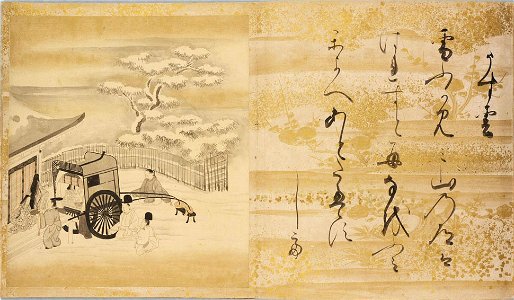 うす雲
雪ふかみみ山の道は
はれすとも猶ふみ
かよへあとたえす
して